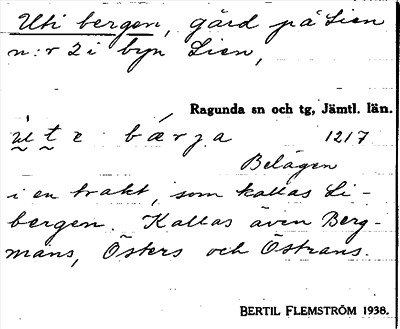 Uti bergen, gård på Lien
n:r 2 i byn Lien,
Ragunda sn och tg, Jämtl. län.
ut e bærja 1217
Belägen
i en trakt, som kallas Li-
bergen. Kallas även Berg-
mans, Östers och Östrans.
BERTIL FLEMSTRÖM 1938.